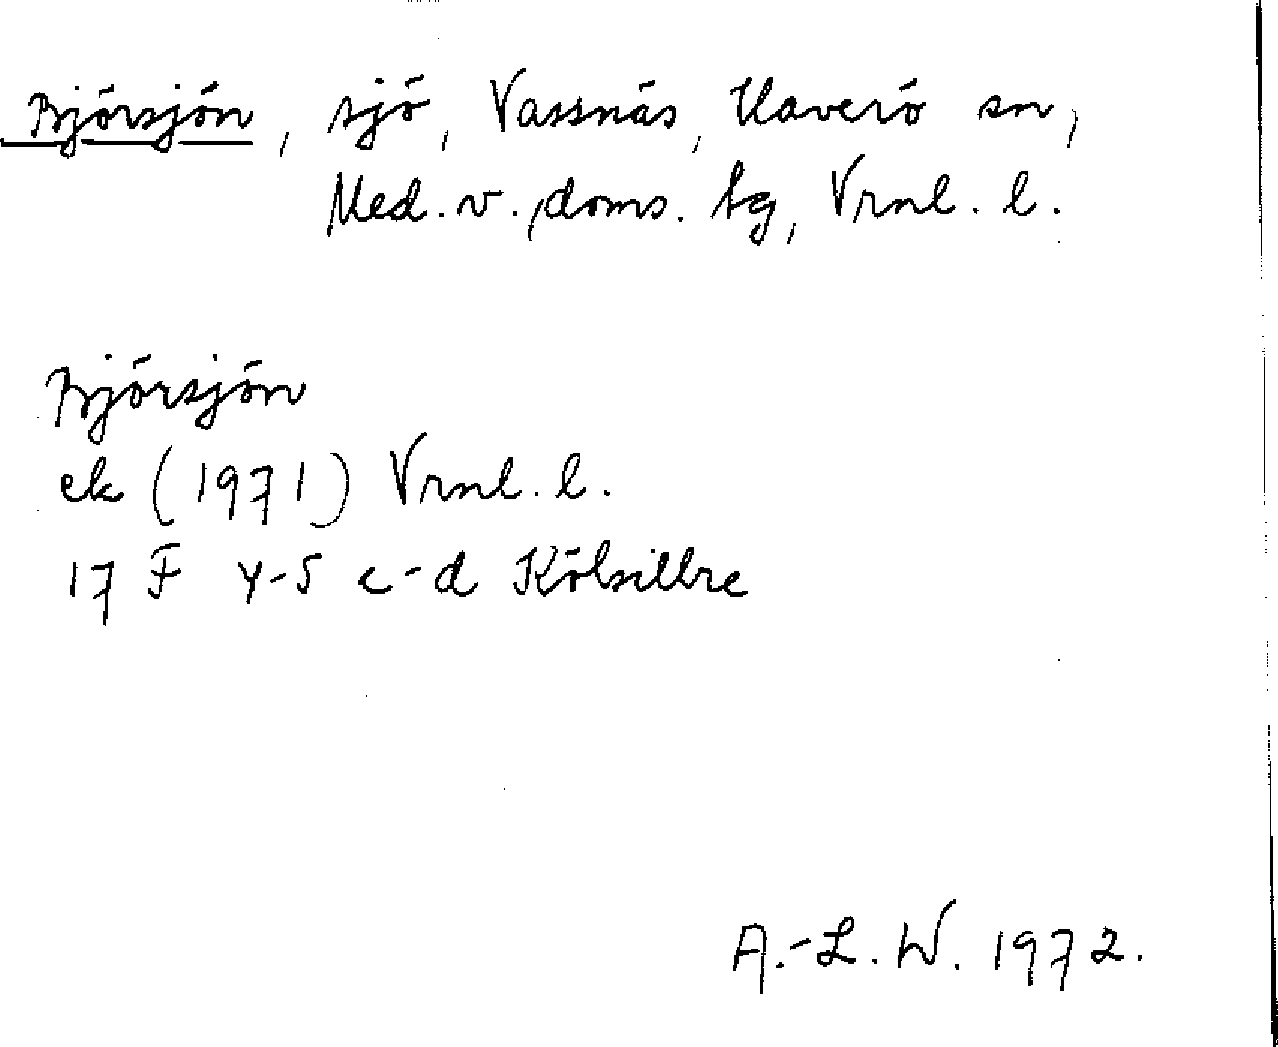 Bjørsjön, sjö, Vassnäs, Haverö sn,
Med. v., doms. tg, Vrnl. l.
Björsjön
ek (1971) Vrnl. l.
17 F 4-5 c-d Kölsillre
A.-L. W. 1972.